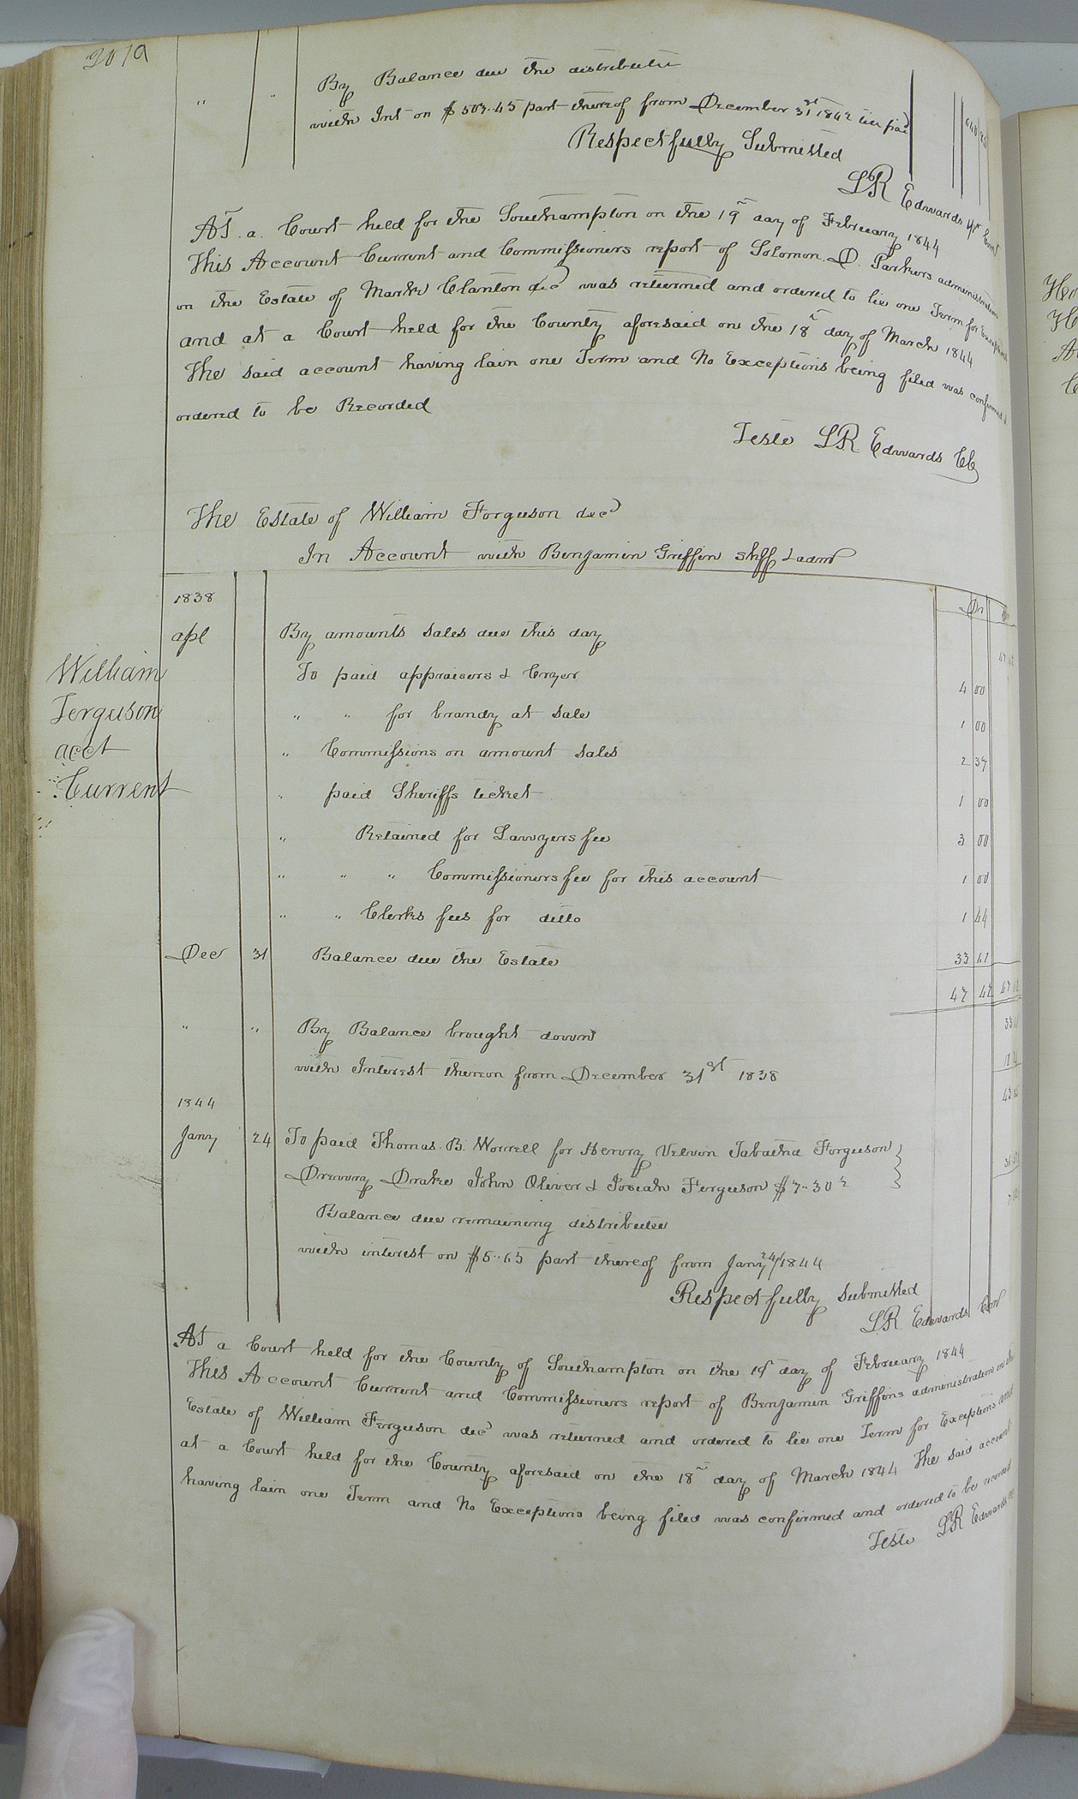 By Balance due the distributee
" " with Int on $503.45 part thereof from December 31st 1842 till paid
Respectfully Submitted
LR Edwards
At a Court held for the Southampton on the 19th day of February 1844
This Account Current and Commissioners report of Solomon D. Parkers administration
on the Estate of Clanton decd was returned and ordered to lie one Term for Exceptions
and at a Court held for the County aforesaid on the 18th day of March 1844
The said account having lain one Term and No Exceptions being filed was confirmed &
ordered to be Recorded
Teste LR Edwards CC
The Estate of William Ferguson decd
In Account with Benjamin Griffin shff & admr
1838 Dr
apl By amounts sales due this day
William
Ferguson
acct
Current
To paid appraisers & Cryer 4 00
" " for brandy at sale 1 00
" Commissions on amount sales 2 37
" paid Sheriffs ticket 1 00
" Retained for Lawyers fee 3 00
" " " Commissioners fee for this account 1 00
" " Clerks fees for ditto 1 44
Dec 31 Balance due the Estate 33 61
47 42
" " By Balance brought down
with Interest thereon from December 31st 1838
1844
Jany 24 To paid Thomas B. Worrell for Henry Tabatha Ferguson
Drewry Drake John Oliver & Josiah Ferguson $7-30
Balance due remaining distributee
with interest on $5..65 part thereof from Jany 24/1844
Respectfully submitted
LR Edwards Com
At a Court held for the County of Southampton on the 19 day of February 1844
This Account Current and Commissioners report of Benjamin Griffins administration on the
Estate of William Ferguson decd was returned and ordered to lie one Term for Exceptions and
at a Court held for the County aforesaid on the 18th day of March 1844 The said account
having lain one Term and No Exceptions being filed was confirmed and ordered to be recorded
Teste LR Edwards